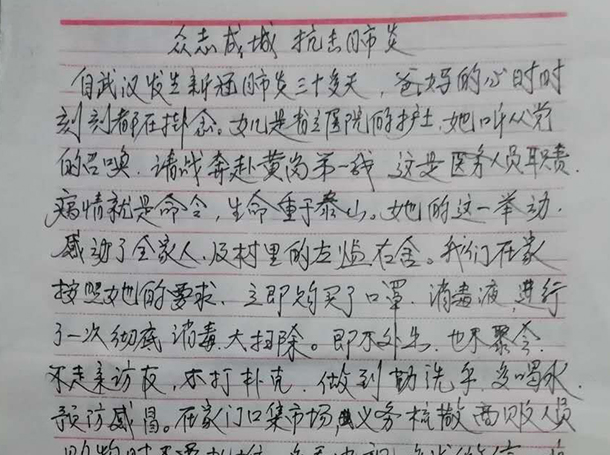 众志成城 抗击肺炎
自武汉发生新冠肺炎三十多天，爸妈的心时时
刻刻都在掛念。女儿是省立医院的护士，她听从党
的召唤，请战奔赴黄岗第一线，这是医务人员职责.
病情就是命令，生命重于泰山。她的这一举动，
感动了全家人，及村里的左邻右舍。我们在家
按照她的要求，立即购买了口罩，消毒液，进行
了一次彻底消毒，大扫除。即不外出，也不聚会
不走亲访友，不打扑克，做到勤洗手，多喝水，
预防感冒。在家门口集市场 义务梳散商贩人员
购物时不